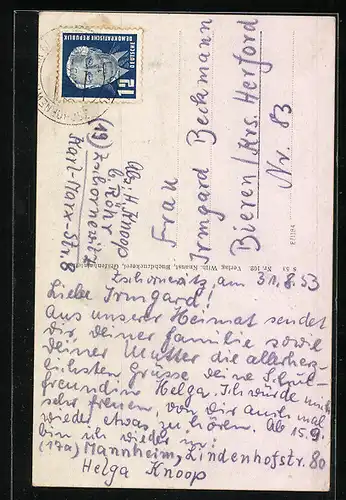 DEUTSCHE
DEMOKRATISCHE REPUBLIK
12
Abs. H. Knoop
b. Rohr
(19) Zschornewitz
Karl-Marx-Str. 8
Frau
Irmgard Beckmann
Bieren / Krs. Herford
Nr. 83
Verlag Wilh. Knaust, Buchdruckerei, Gräfenhainichen
Zschornewitz, am 31.8.53
Liebe Irmgard!
Aus unserer Heimat sendet
dir, deiner Familie sowie
deiner Mutter die allerherz-
lichsten Grüsse deine Schul-
freundin Helga. Ich würde mich
sehr freuen, von dir auch mal
wieder etwas zu hören. Ab 15.9.
bin ich wieder in:
(17a) Mannheim, Lindenhofstr. 80
Helga Knoop